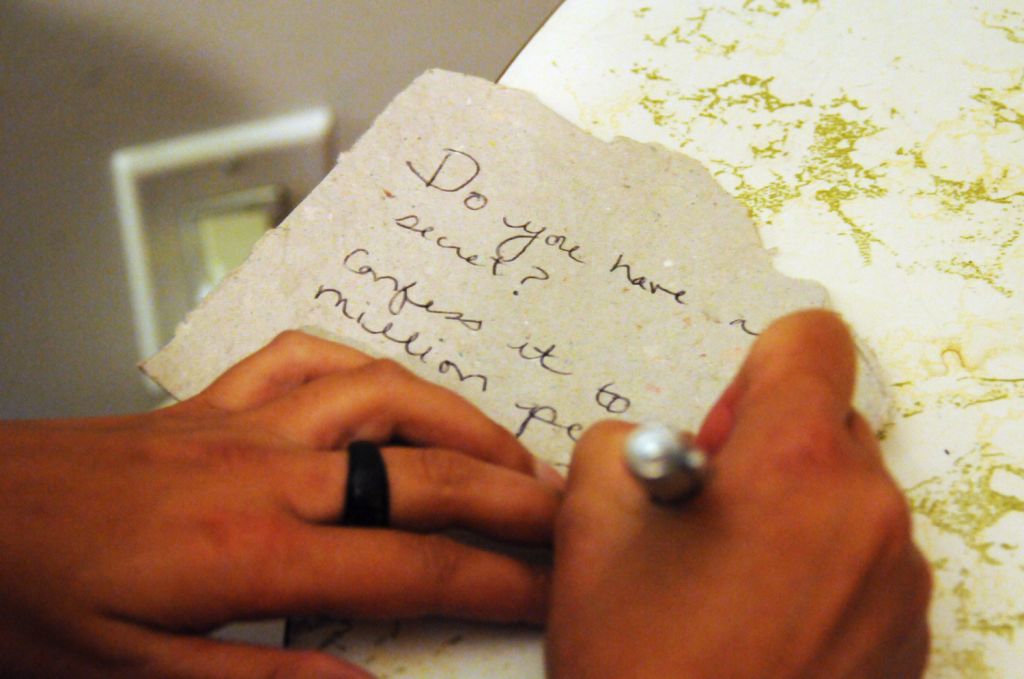 Do you have a
secret?
confess it to
million pe